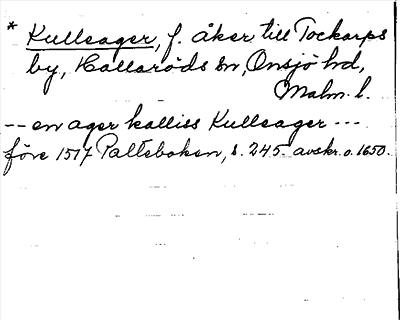 * Kulleager, f. åker till Tockarps
by, Hallaröds sn, Onsjö hd,
Malm. l.
-- en ager kalliss Kulleager ---
före 1517 Palteboken, s. 245 avskr. o. 1650.